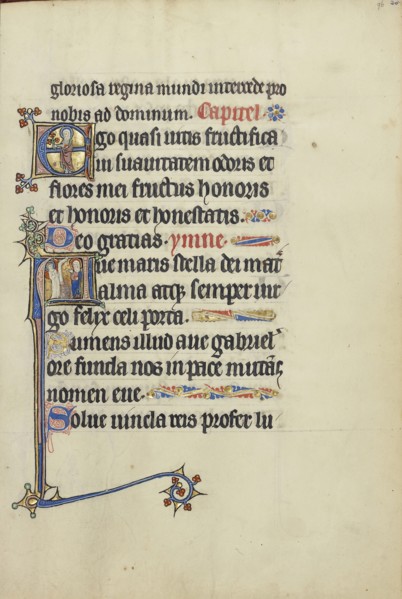 gloriosa regina mundi intercede pro
nobis ad dominum. Capitel.
Ego quasi uitis fructifica
ui suauitatem odoris et
flores mei fructus honoris
et honoris et honestatis.
Deo gratias. ymne
Aue maris stella dei mat
alma atq semper uir
go felix celi porta.
Sumens illud aue gabriel
ore funda nos in pace mutãs
nomen eue.
Solue uincla reis profer lu